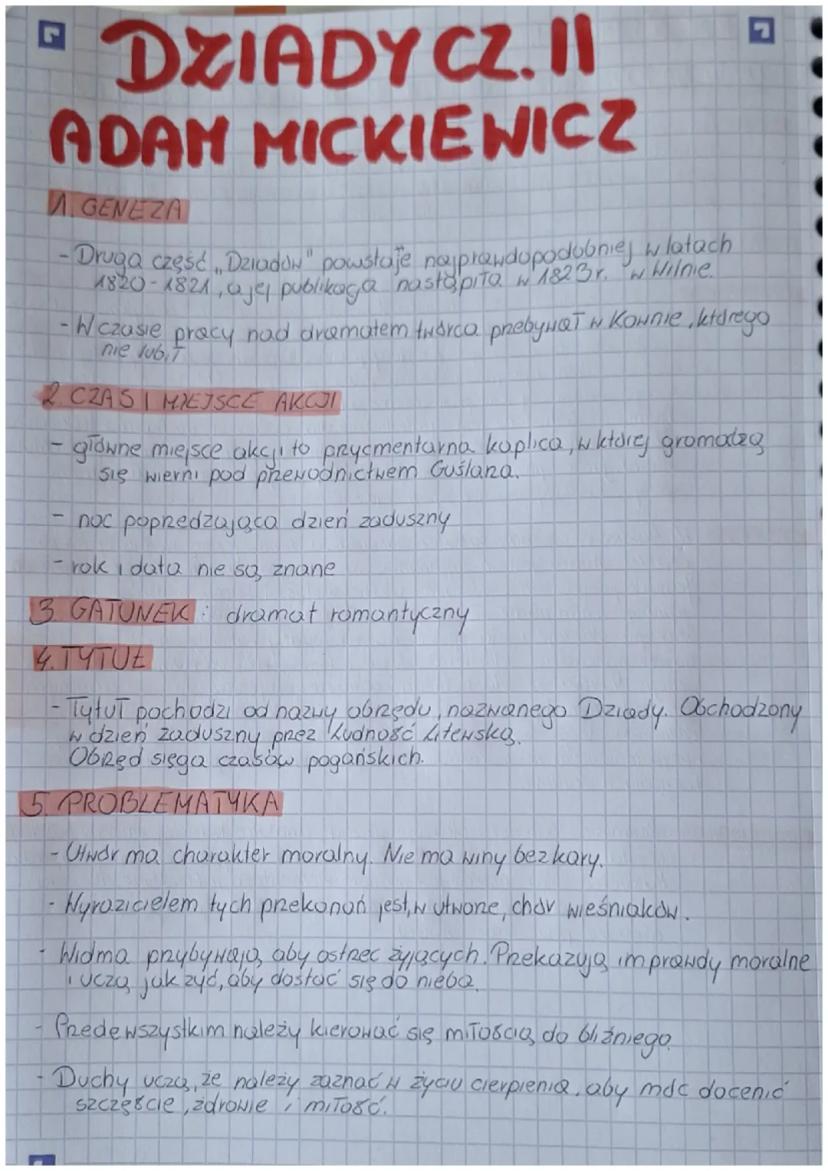 DZIADY CZ. II
ADAM MICKIEWICZ
1. GENEZA
- Druga część „Dziadów" powstaje najprawdopodobniej w latach
1820-1821, a jej publikacja nastąpiła w 1823 r. w Wilnie.
- W czasie pracy nad dramatem twórca przebywał w Kownie, którego
nie lubił
2. CZAS I MIEJSCE AKCJI
- główne miejsce akcji to przycmentarna kaplica, w której gromadzą
się wierni pod przewodnictwem Guślarza.
- noc poprzedzająca dzień zaduszny
- rok i data nie są znane
3. GATUNEK: dramat romantyczny
4. TYTUŁ
- Tytuł pochodzi od nazwy obrzędu, nazwanego Dziady. Obchodzony
w dzień zaduszny przez ludność litewską.
Obrzęd sięga czasów pogańskich.
5. PROBLEMATYKA
- Utwór ma charakter moralny. Nie ma winy bez kary.
- Wyrazicielem tych przekonań jest, w utworze, chór wieśniaków.
- Widma przybywają, aby ostrzec żyjących. Przekazują im prawdy moralne
i uczą, jak żyć, aby dostać się do nieba.
- Przede wszystkim należy kierować się miłością do bliźniego.
- Duchy uczą, że należy zaznać w życiu cierpienia, aby móc docenić
szczęście, zdrowie i miłość.